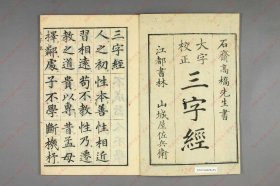 石齋高橋先生書
大字
校正
三字經
江都書林 山城屋佐兵衛
三字經
人之初性本善性相近
習相遠苟不教性乃遷
教之道貴以專昔孟母
擇鄰處子不學斷機杼